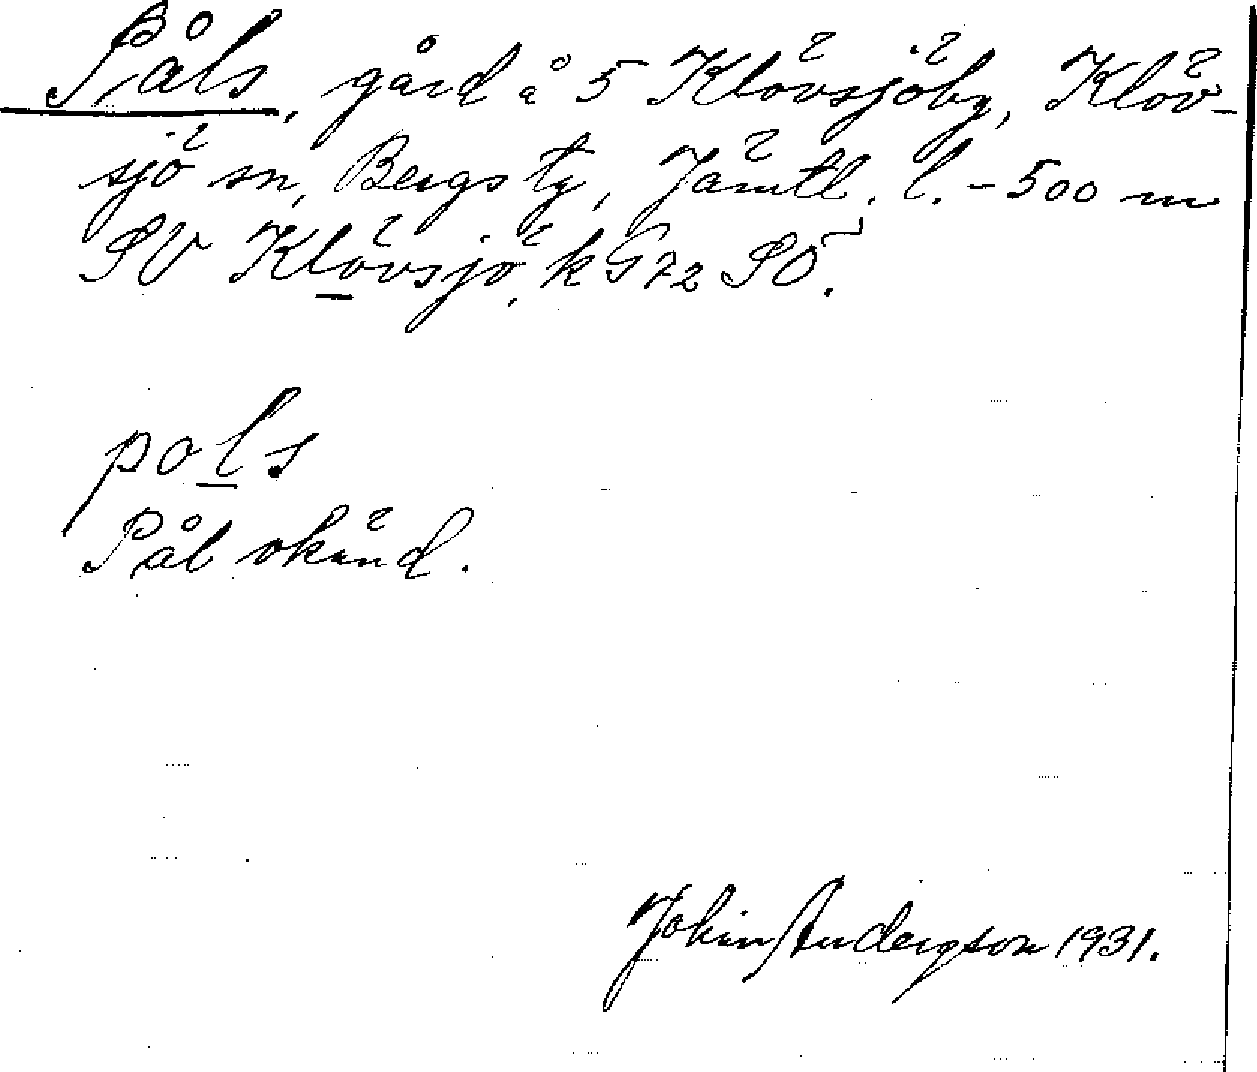 Påls, gård å 5 Klövsjöby, Klöv-
sjö sn, Bergs tg, Jämtl. l. - 500 m
SV Klövsjö, k G 72 SÖ.
pols
Pål okänd.
John Andersson 1931.